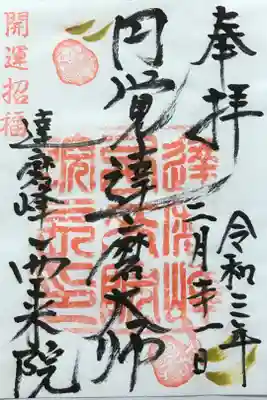 奉拝
令和三年
二月 一日
円覚達磨大師
達磨峰 西来院
開運招福